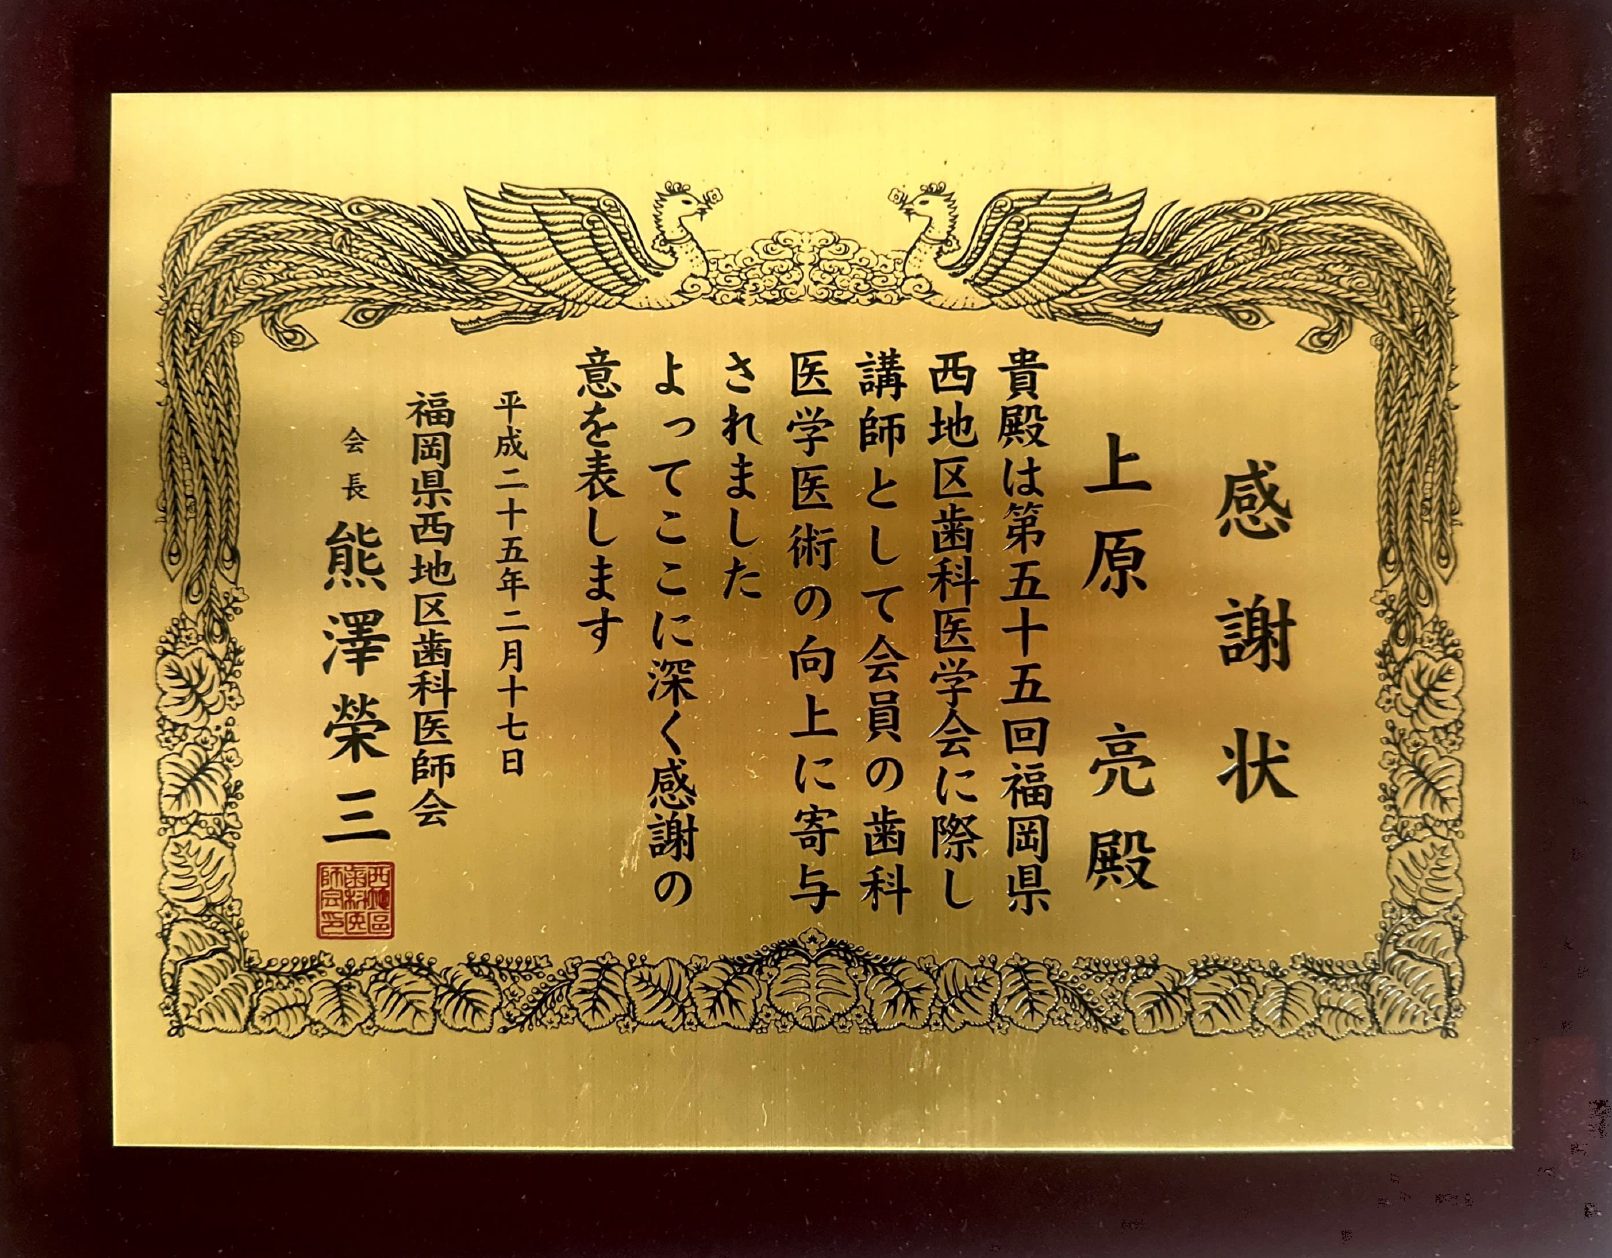 感謝状
上原 亮殿
貴殿は第五十五回福岡県
西地区歯科医学会に際し
講師として会員の歯科
医学医術の向上に寄与
されました
よってここに深く感謝の
意を表します
平成二十五年二月十七日
福岡県西地区歯科医師会
会長 熊澤榮三